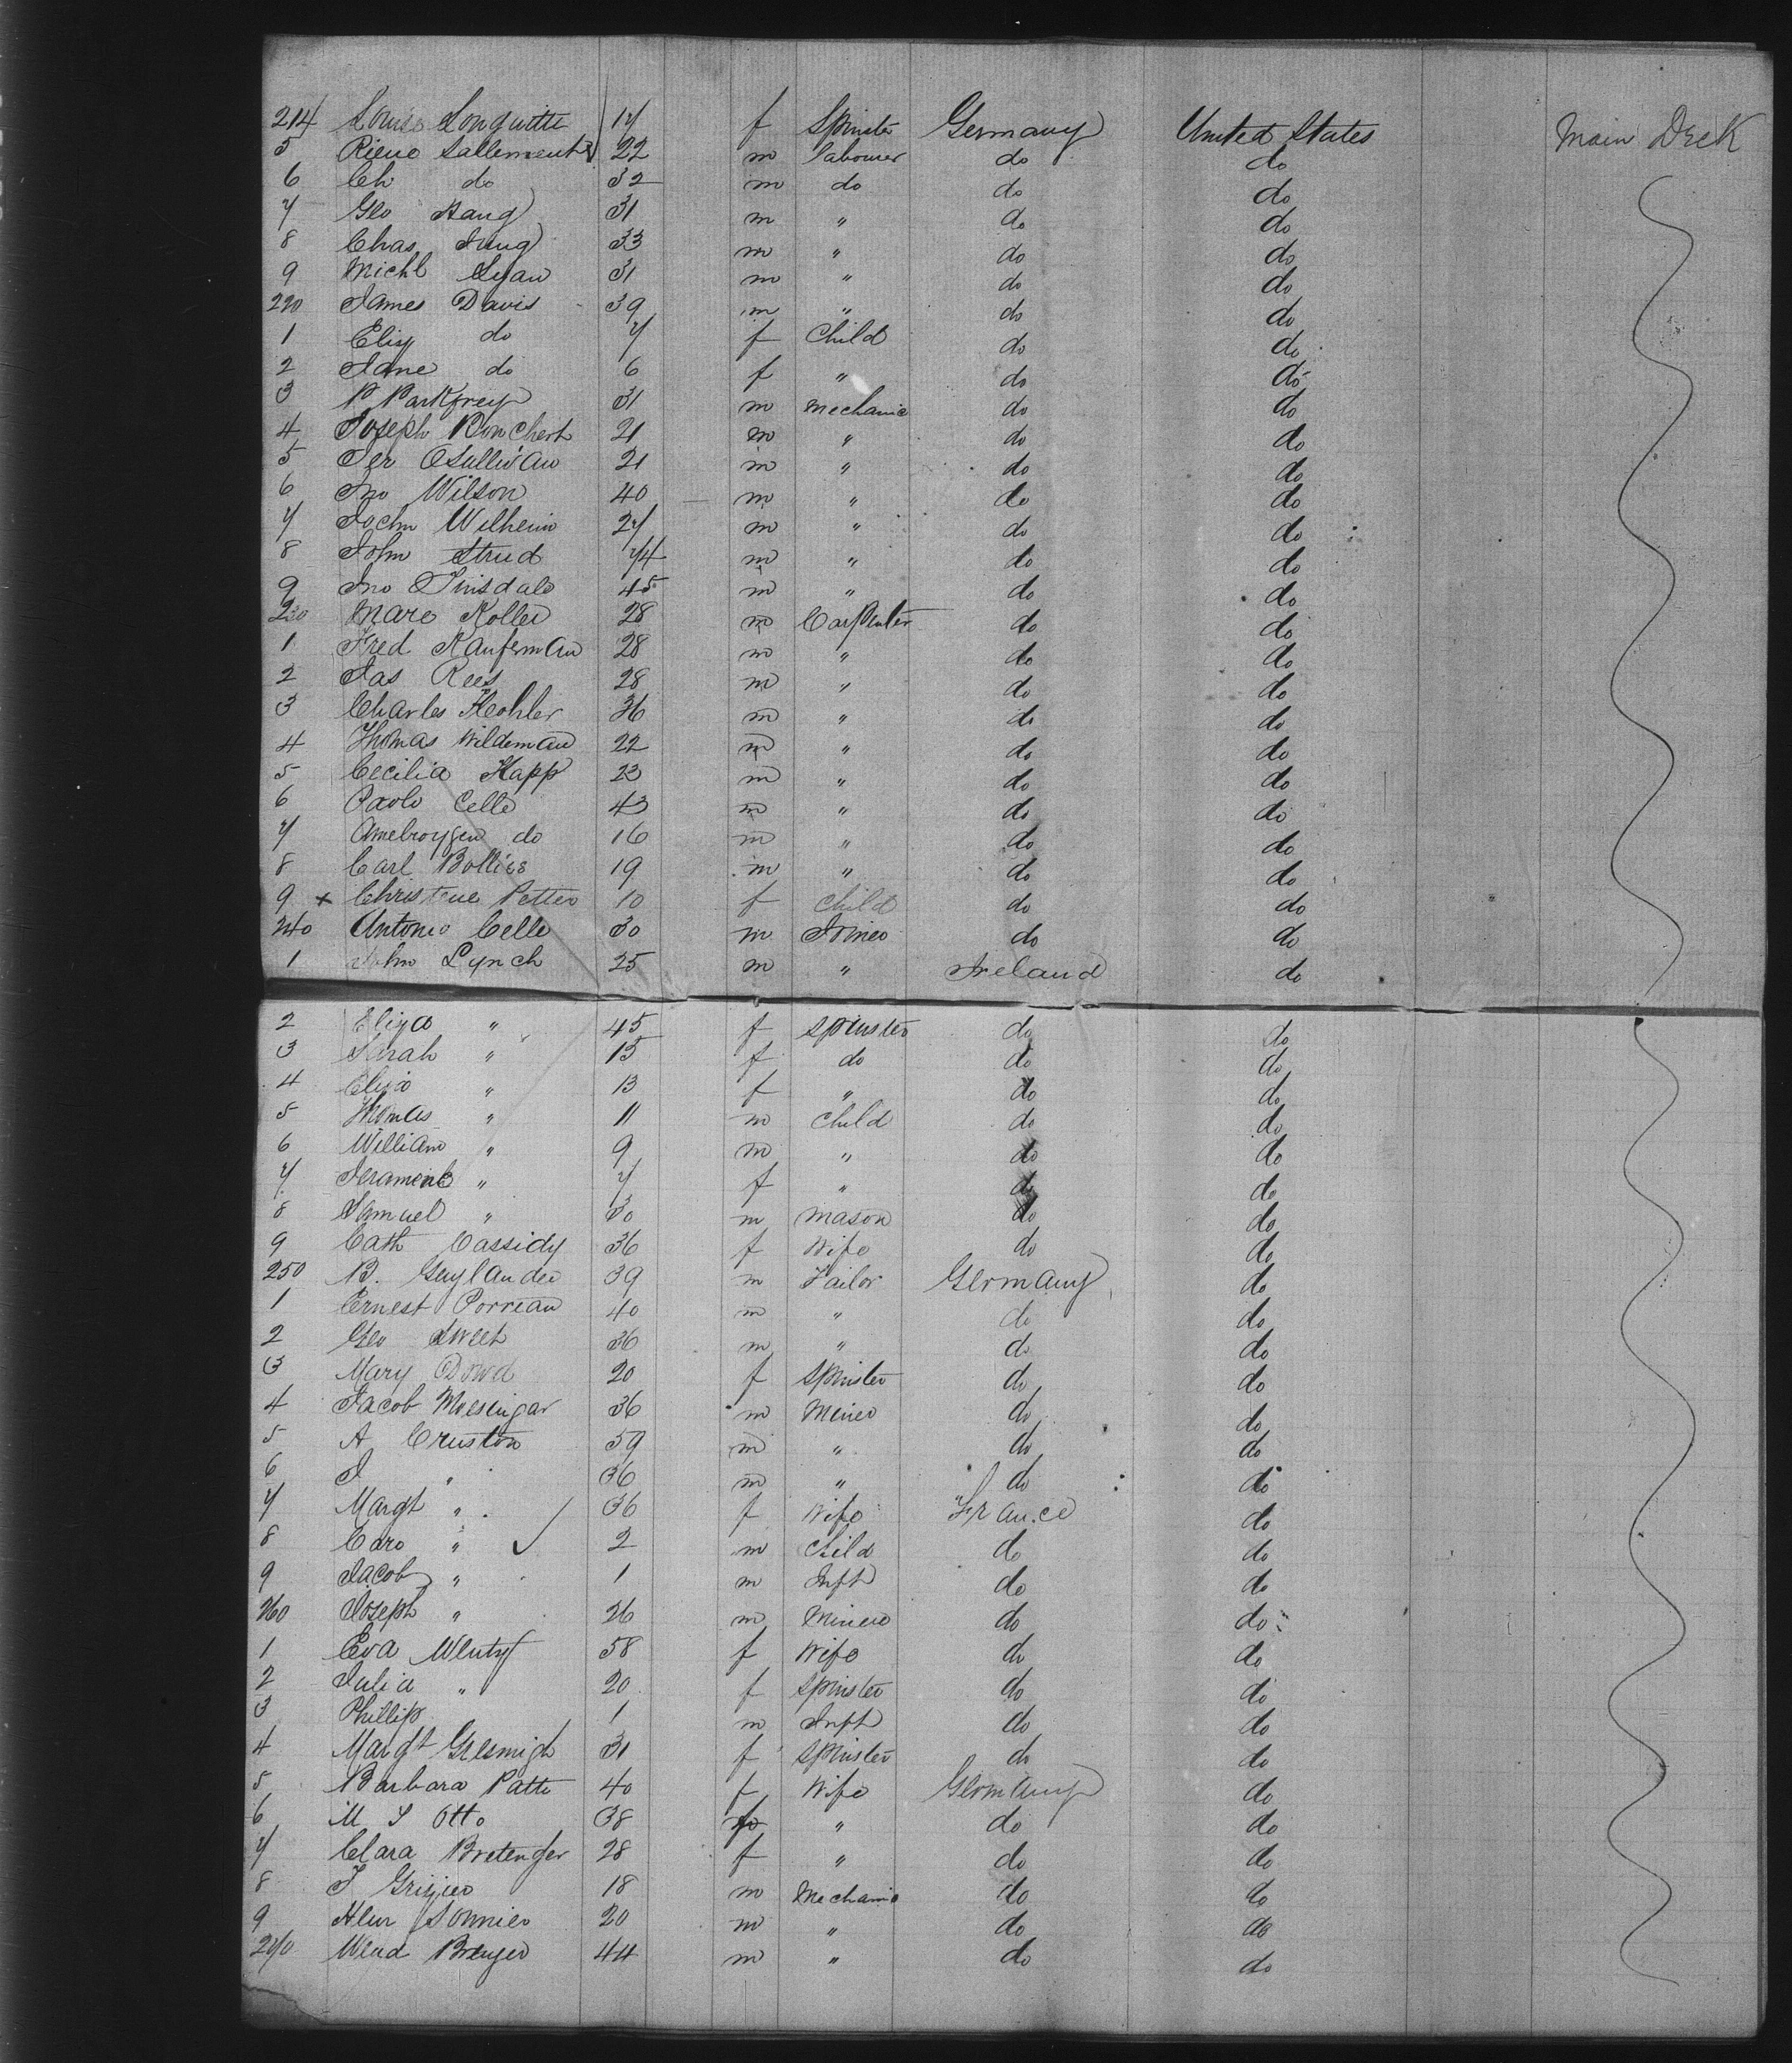 214 Louis Longuitte 17 f Spinster Germany United States Main Deck
5 Rieno Sallement 22 m labourer do do
6 Ch do 32 m do do do
7 Geo Haug 31 m " do do
8 Chas Jung 33 m " do do
9 Michl Lyan 31 m " do do
220 James Davis 39 m " do do
1 Eliz do 7 f Child do do
2 Jane do 6 f " do do
3 P Parkfrey 31 m Mechanic do do
4 Joseph Bonchert 21 m " do do
5 Jer OSullivan 21 m " do do
6 Jno Wilson 40 m " do do
7 Jochn Wilheim 27 m " do do
8 John Strud 74 m " do do
9 Jno Tinsdale 45 m " do do
230 Marc Koller 28 m Carpenter do do
1 Fred Kaufemau 28 m " do do
2 Jas Rees 28 m " do do
3 Charles Keohler 36 m " do do
4 Thomas Wildeman 22 m " do do
5 Cecilia Happ 23 m " do do
6 Paolo Celle 43 m " do do
7 do 16 m " do do
8 Carl Bollies 19 m " do do
9 x Christene Petter 10 f Child do do
240 Antonio Celle 30 m do do
1 John Lynch 25 m " Ireland do
2 Eliza " 45 f Spinster do do
3 Sarah " 15 f do do do
4 Eliza " 13 f " do do
5 Thomas " 11 m Child do do
6 William " 9 m " do do
7 " 7 f " do do
8 Samuel " 30 m Mason do do
9 Cath Cassidy 36 f Wife do do
250 B. Guylander 39 m Tailor Germany do
1 Ernest Porreau 40 m " do do
2 Geo Sweet 36 m " do do
3 Mary Dowd 20 f Spinster do do
4 Jacob Moesingar 36 m Miner do do
5 A Cruston 59 m " do do
6 J " 36 m " do do
7 Margt " 36 f Wife France do
8 Caro " 2 m Child do do
9 Jacob " 1 m Inft do do
260 Joseph " 26 m Miner do do
1 Eva Wentz 58 f Wife do do
2 Julia " 20 f Spinster do do
3 Phillip 1 m Inft do do
4 Margt Gresmigh 31 f Spinster do do
5 Barbara Patte 40 f Wife Germany do
6 M S Otto 38 " do do
7 Clara Bretenger 28 f " do do
8 J 18 m Mechanic do do
9 Sonnier 20 m " do do
270 Wend Breuger 44 m " do do